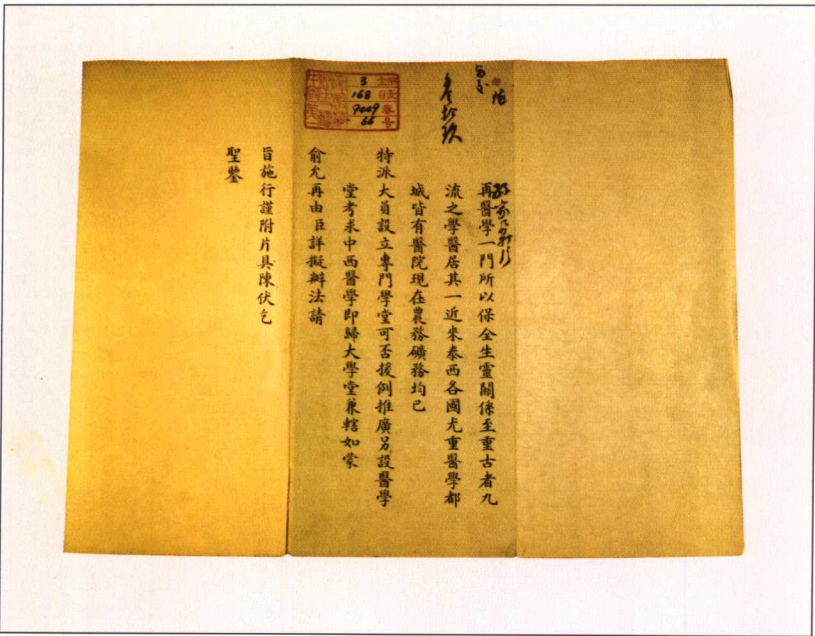 再醫學一門所以保全生靈關係至重古者九
流之學醫居其一近來泰西各國尤重醫學都
城皆有醫院現在農務礦務均已
特派大員設立專門學堂可否援例推廣另設醫學
堂考求中西醫學即歸大學堂兼轄如蒙
俞允再由臣詳擬辦法請
旨施行謹附片具陳伏乞
聖鑒
3
168
9449
66